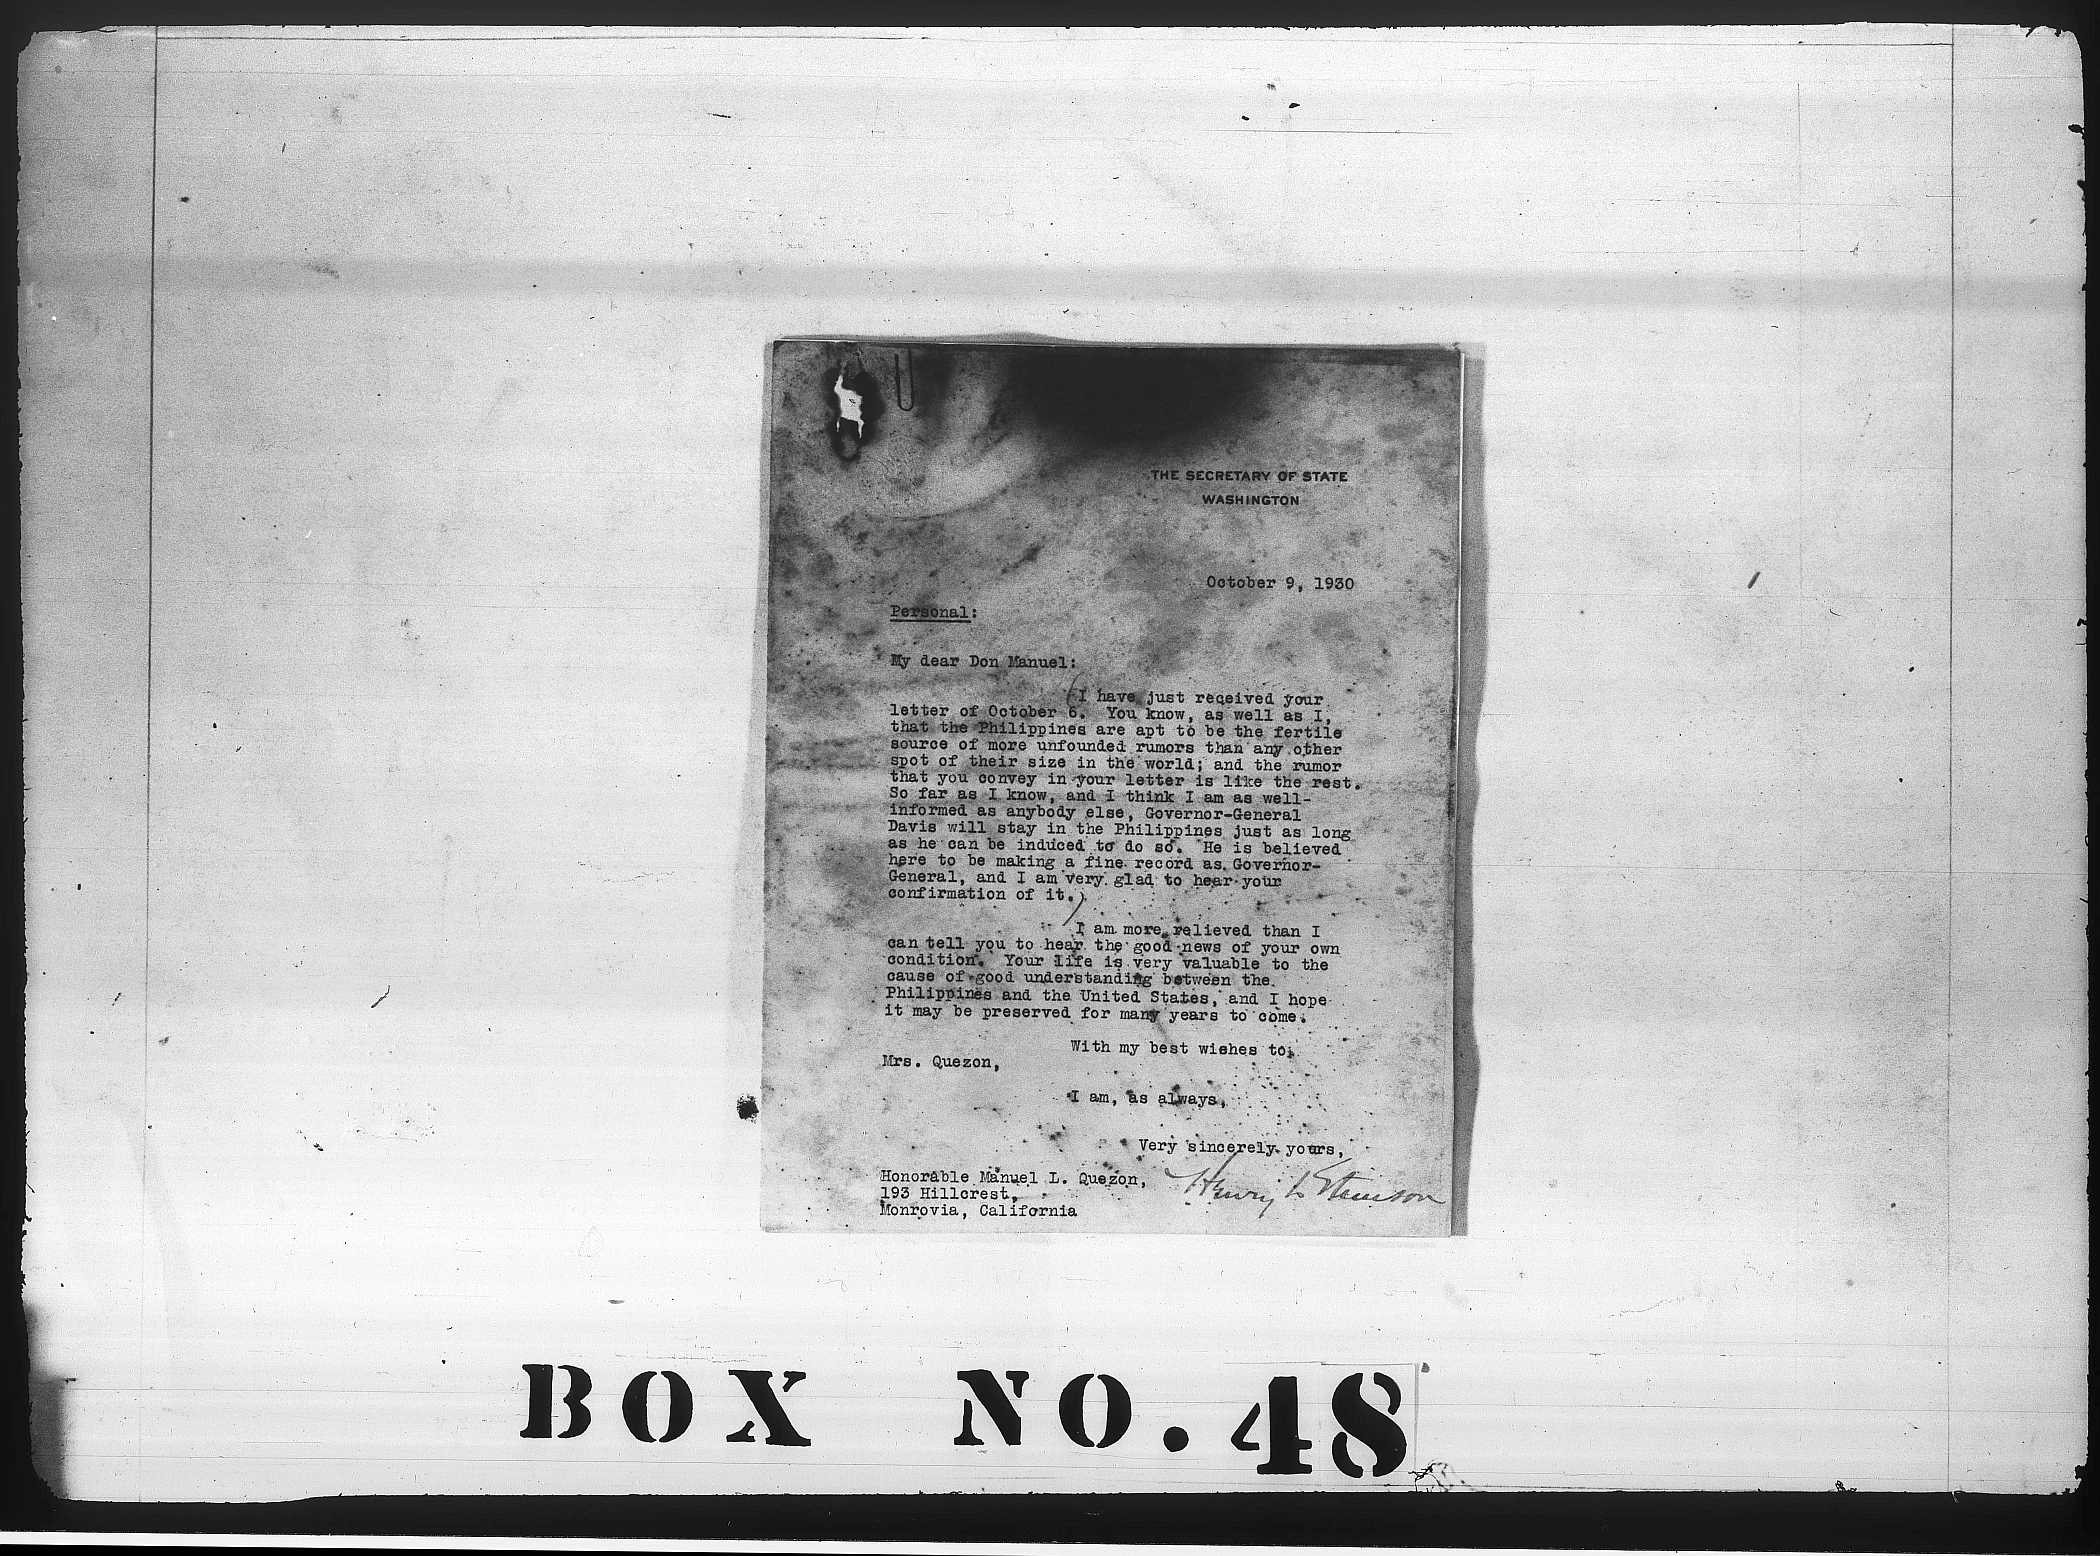 THE SECRETARY OF STATE
WASHINGTON
October 9, 1930
Personal:
My dear Don Manuel:
(I have just received your
letter of October 6. You know, as well as I,
that the Philippines are apt to be the fertile
source of more unfounded rumors than any other
spot of their size in the world; and the rumor
that you convey in your letter is like the rest.
So far as I know, and I think I am as well-
informed as anybody else, Governor-General
Davis will stay in the Philippines just as long
as he can be induced to do so. He is believed
here to be making a fine record as Governor-
General, and I am very glad to hear your
confirmation of it.)
I am more relieved than I
can tell you to hear the good news of your own
condition. Your life is very valuable to the
cause of good understanding between the
Philippines and the United States, and I hope
it may be preserved for many years to come.
With my best wishes to
Mrs. Quezon,
I am, as always,
Very sincerely yours,
Henry L Stimson
Honorable Manuel L. Quezon,
193 Hillcrest,
Monrovia, California
BOX NO. 48